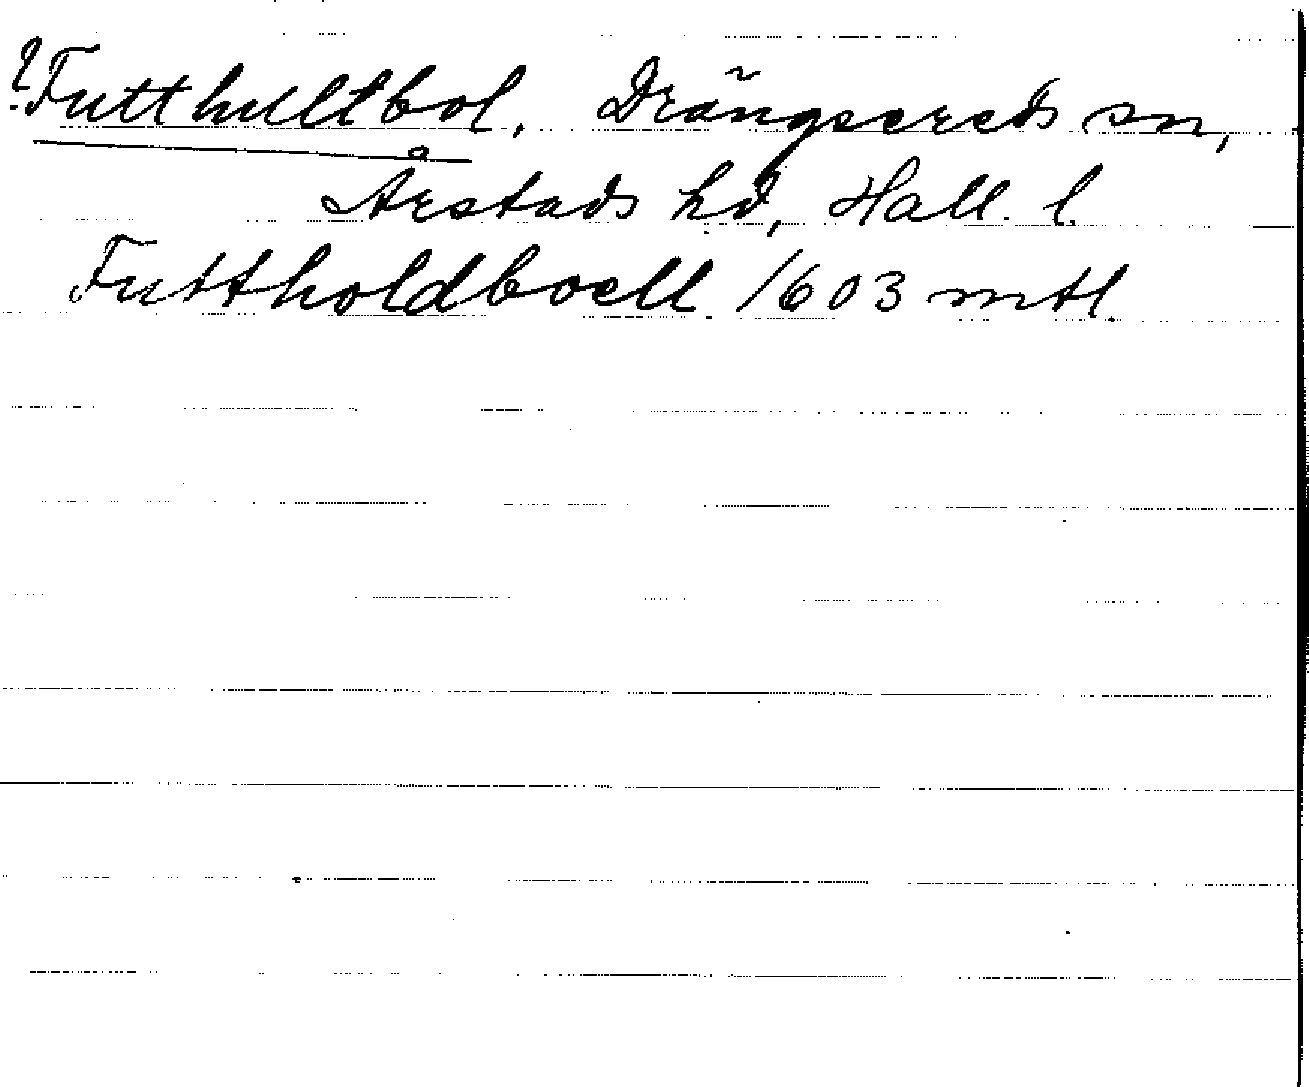 ?Futthultbol, Drängsereds sn,
Årstads hd, Hall. l.
Futtholdboell 1603 mtl.